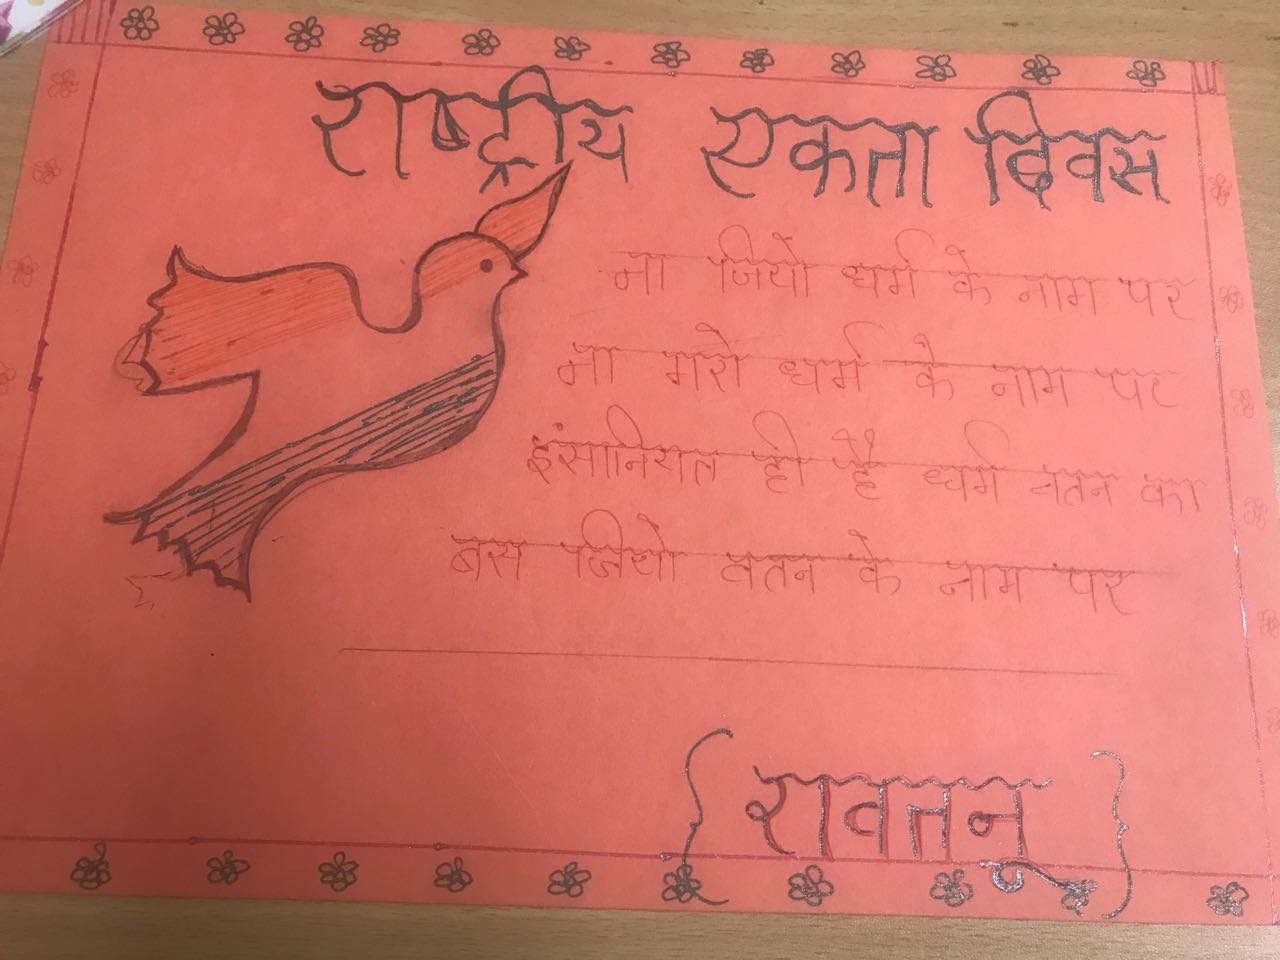 राष्ट्रीय एकता दिवस
ना जियो धर्म के नाम पर
ना मरो धर्म के नाम पर
इंसानियत ही है धर्म वतन का
बस जियो वतन के नाम पर
{रावतनू}